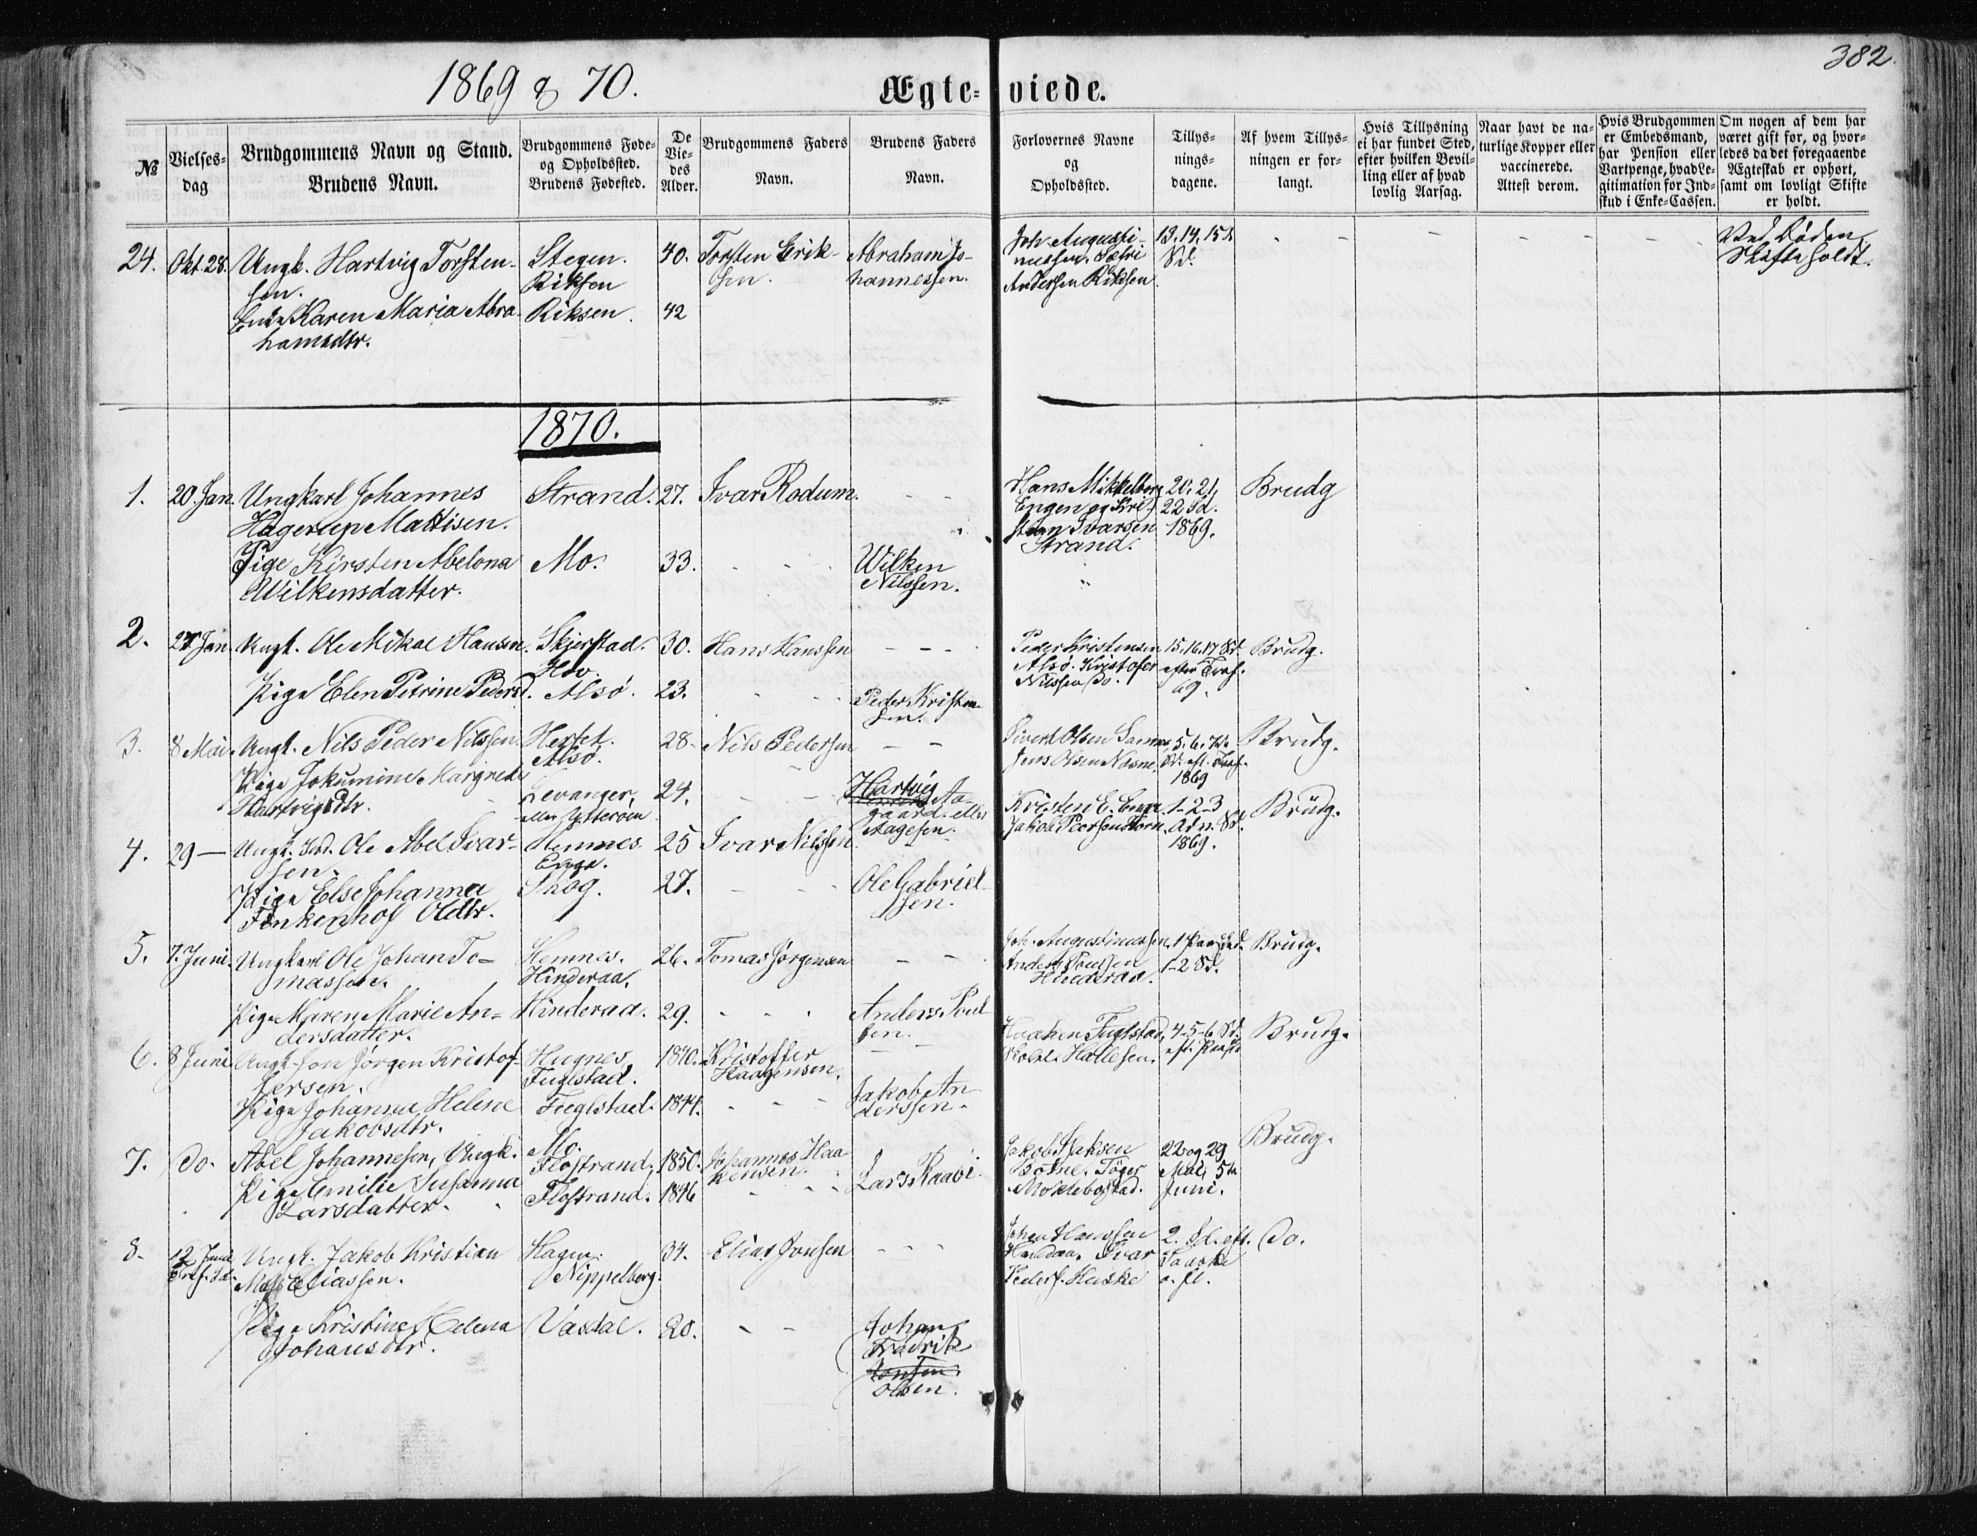 382.
1869 & 70.
Ægte-viede.
№
Vielses-
dag
Brudgommens Navn og Stand.
Brudens Navn.
Brudgommens Føde-
og Opholdssted.
Brudens Fødested.
De
Vie-
des
Alder.
Brudgommens Faders
Navn.
Brudens Faders
Navn.
Forlovernes Navne
og
Opholdssted.
Tillys-
nings-
dagene.
Af hvem Tillys-
ningen er for-
langt.
Hvis Tillysning
ei har fundet Sted,
efter hvilken Bevil-
ling eller af hvad
lovlig Aarsag.
Naar havt de na-
turlige Kopper eller
vaccinerede.
Attest derom.
Hvis Brudgommen
er Embedsmand,
har Pension eller
Vartpenge, hvad Le-
gitimation for Ind-
skud i Enke-Cassen.
Om nogen af dem har
været gift før, og hvor-
ledes da det foregaaende
Ægteskab er ophørt,
samt om lovligt Skifte
er holdt.
24. Okt. 28. Ungk. Hartvig Torsten-
sen.
Enke Karen Maria Abra-
hamsdtr.
Stegen.
Riksen
Riksen.
40.
42
Torsten Erik-
sen.
Abraham Jo-
hannessen.
Joh. Augusti-
nussen
Anderssen Riksen.
13. 14. 15de
Sd.
Ved Døden
Skifte holdt.
1870.
1. 20. Jan. Ungkarl Johannes
Hagerup Mattisen.
Pige Kirsten Abelona
Wilkensdatter.
Strand.
Mo.
27.
33.
Ivar Rodum.
Wilken
Nilssen.
Hans Mikkelborg
Engen og Kri-
sten Ivarsen
Strand.
20. 21.
22 Sd.
1869.
Brudg
2. 27. Jan. Ungk. Ole Mikal Hansen.
Pige Elen Petrine Pedersd.
Skjerstad.
Hov
Alsø.
30.
23.
Hans Hanssen
Peder Kristen-
sen.
Peder Kristensen
Alsø. Kristofer
Nilssen Do.
15. 16. 17 Sd.
efter Tref.
69.
Brudg.
3. 8 Mai. Ungk. Nils Peder Nilssen
Pige Jokumine Margrete
Hartvigsdtr.
Alsø.
Levanger,
eller Ytterøen
28.
24.
Nils Pedersen
Hartvig
Aa-
gaard eller
Aagesen.
Sivert Olsen
Jens Olsen
5. 6. 7de
Sd. eft. Tref.
1869
Brudg.
4. 29 — Ungk. Ole Abel Ivar-
sen.
Pige Else Johanna
Finkenhof Oldtr.
Hemnes
Enge.
Skog.
25
27.
Ivar Nilssen
Ole Gabriel-
sen.
Kristen E. Enge
1-2-3
Adv. Sd.
1869.
Brudg.
5. 7. Juni. Ungkarl Ole Johan To-
massen.
Pige Maren Marie An-
dersdatter.
Hemnes.
Hinderaa.
Hinderaa.
26.
29.
Tomas Jørgensen
Anders Poul
sen.
Joh. Augustinussen
Anders Poulsen
Hinderaa.
1-2 Sd.
Brudg.
6. 8 Juni. Ungk. Jørgen Kristof-
fersen.
Pige Johanna Helene
Jakobsdtr.
Hugnes,
Fuglstad.
Fuglstad.
1840.
1844.
Kristoffer
Haagensen.
Jakob An
derssen.
Haaken Fuglstad,
4-5-6 Sd.
eft. Paaske
Brudg.
7. Do. Abel Johannesen, Ungk.
Pige Emilie Susanna
Larsdatter.
Mo.
Flostrand.
Flostrand.
1850.
1846
Johannes Haa
kensen.
Lars Raavi.
Jakob Isaksen
22 og 29
Mai, 5te
Juni.
Brudg.
8. 12 Juni
Tref. Sd. Ungk. Jakob Kristian
Eliassen.
Pige Kristine Helena
Johansdtr.
Hagen.
Nippelberg.
Vasdal.
34.
20.
Elias Jonsen
Johan
Fredrik
Olsen.
Johan Hanssen
Ivar
Peders. Huske
2. Sd. eft.
Paaske
o. fl.
Do.